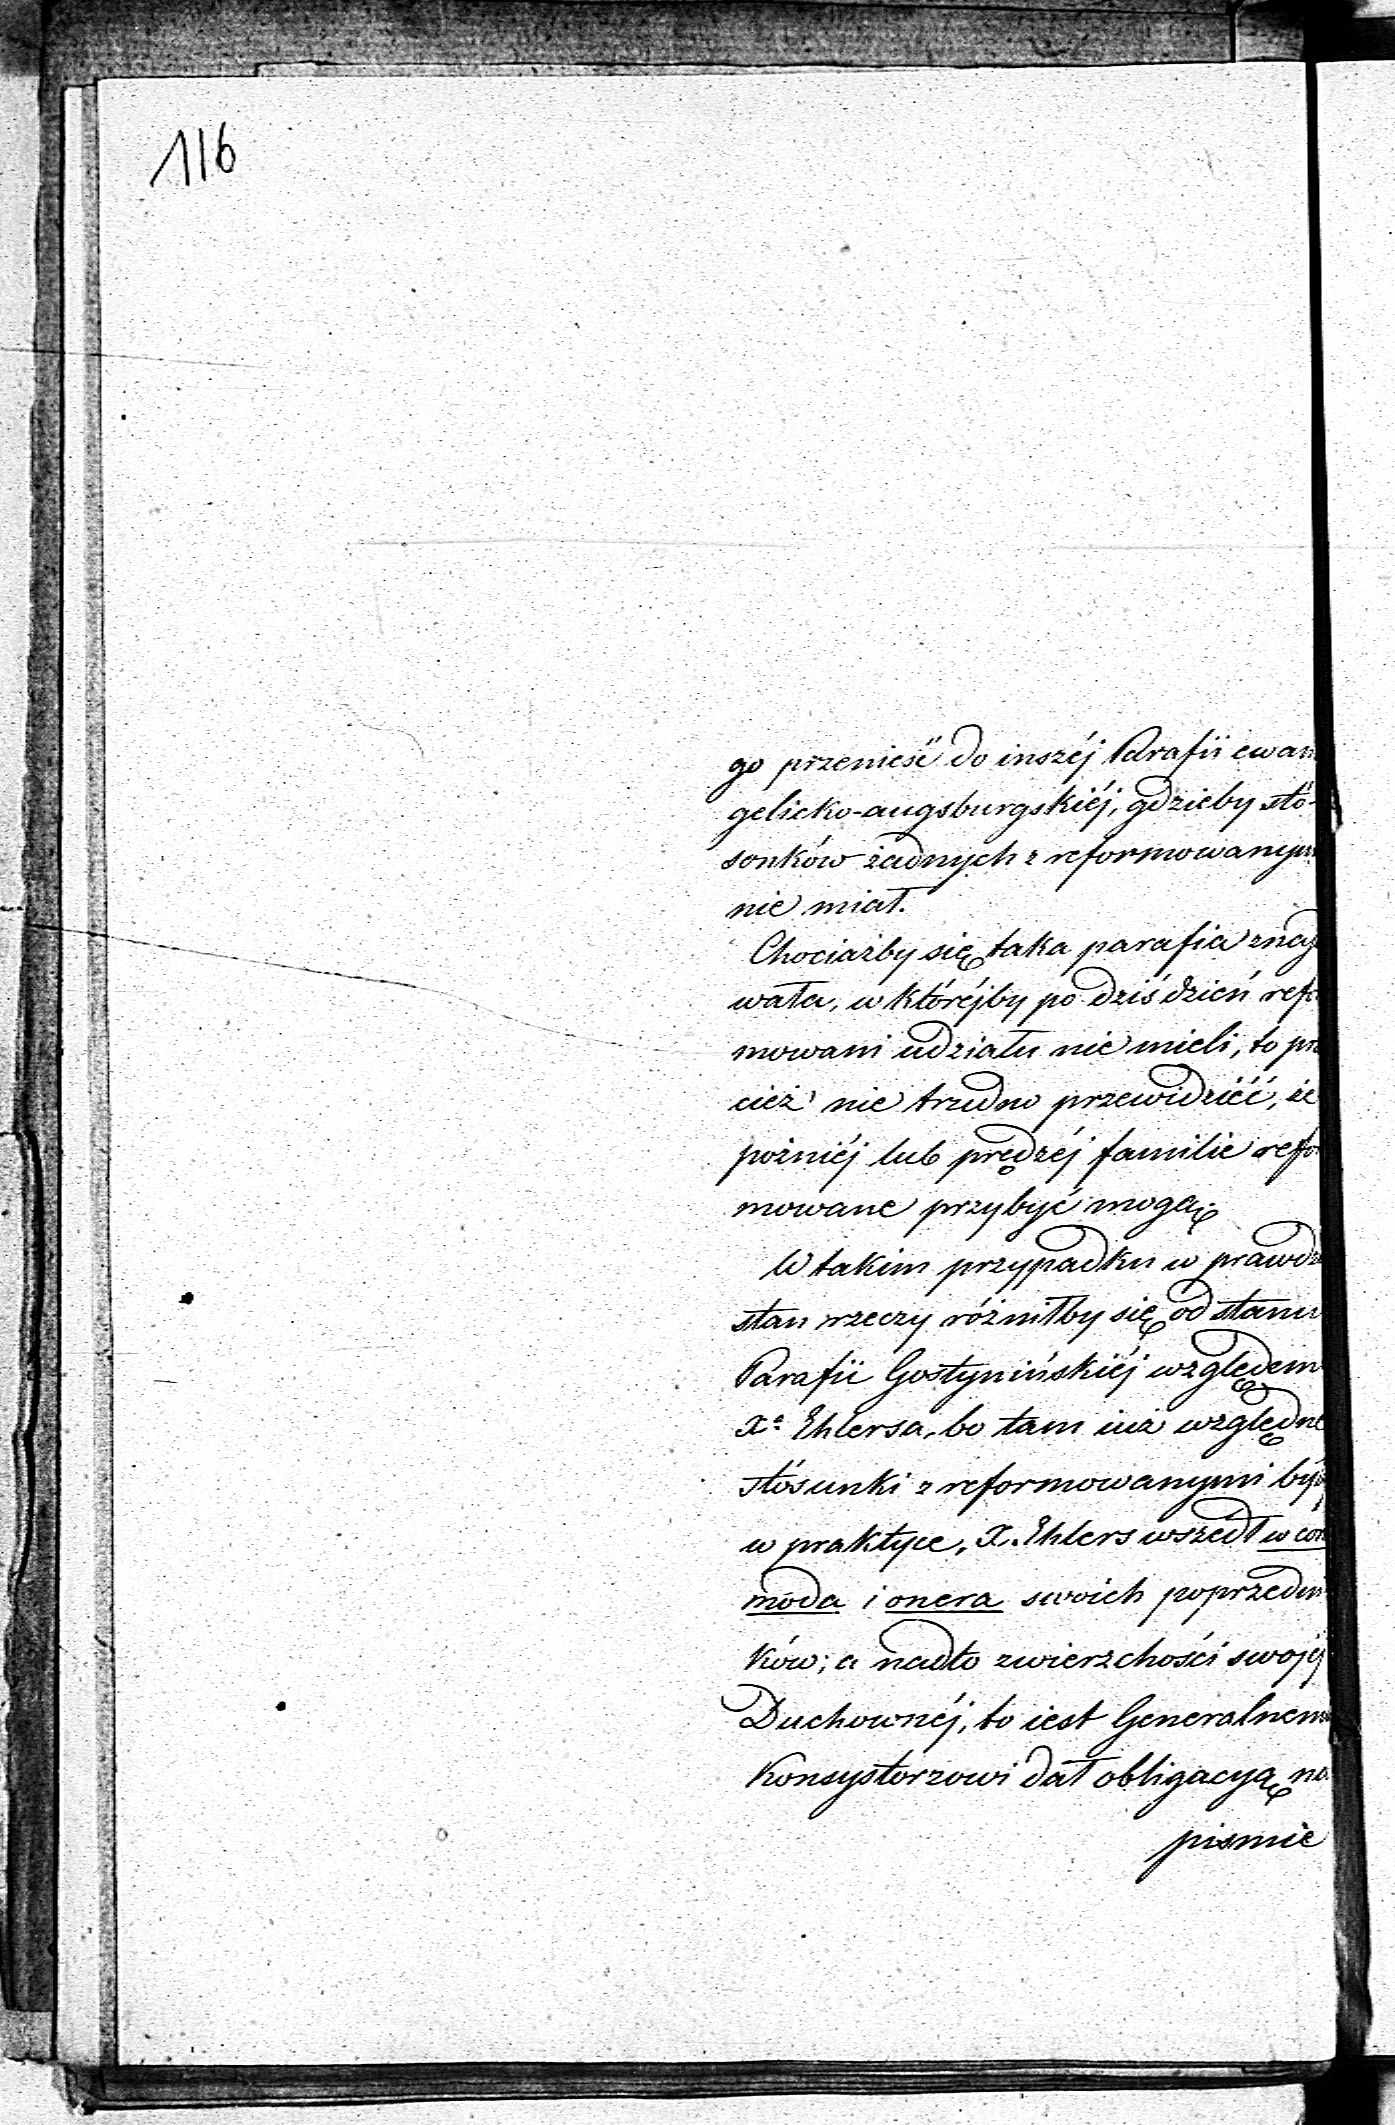 116
go przenieść do inszéj Parafii ewan
gelicko-augsburgskiéj, gdzieby stó-
sonków żadnych z reformowanym
nie miał.
Chociażby się taka parafia znay
wała, w któréjby po dziś dzień refo
mowani udziału nie mieli, to prz
cież nie trudno przewidzieć, że
poźniéj lub prędzéj familie refor
mowane przybyć mogą.
W takim przypadku w prawdz
stan rzeczy różniłby się od stanu
Parafii Gostynińskiéj względem
Xa Ehlersa, bo tam iuż względne
stósunki z reformowanymi był
w praktyce, X. Ehlers wszedł w com
moda i onera swoich poprzedni
ków; a nadto zwierzchości swojéj
Duchownéj, to iest Generalnemu
Konsystorzowi dał obligacyą na
pismie